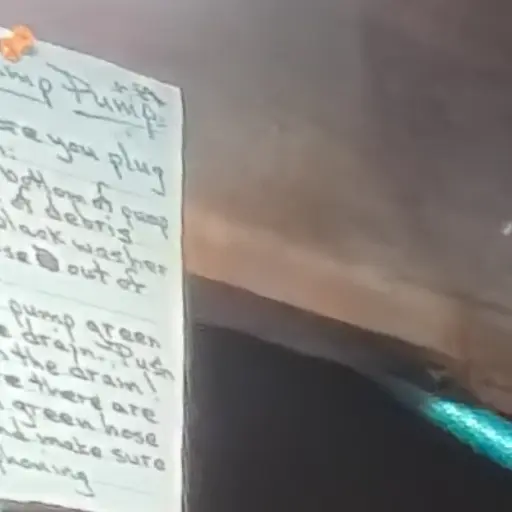 ump Pump
ore you plug
bottom of pump
of debris
black washer
se out of
pump green
e drain. Push
n the drain!
e there are
green hose
nd make sure
phoning